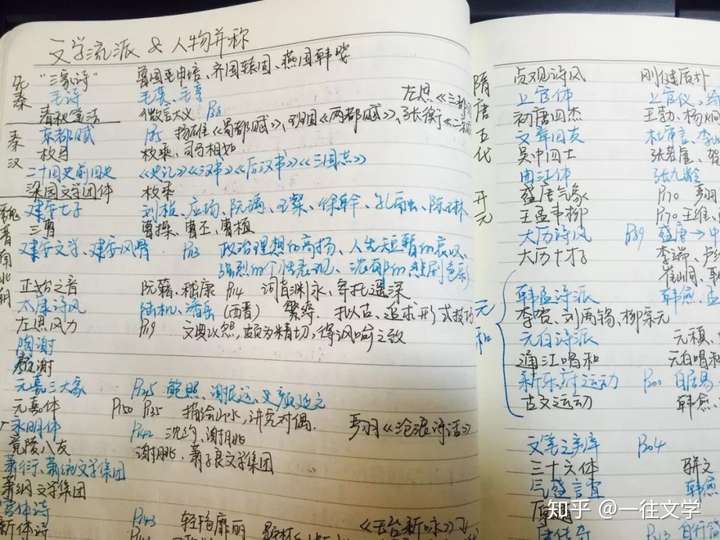 文学流派 & 人物并称
先秦 "三家诗" 鲁国毛申培、齐国辕固、燕国韩婴
毛诗 毛亨、毛苌
春秋笔法 微言大义
秦汉 京都赋 扬雄《蜀都赋》、班固《两都赋》、张衡《二京 左思《三都
枚马 枚乘、司马相如
二十四史前四史 《史记》《汉书》《后汉书》《三国志》
梁园文学团体 枚乘
建安七子 刘桢、应玚、阮瑀、王粲、徐幹、孔融、陈琳
三曹 曹操、曹丕、曹植
建安文学、建安风骨 政治理想的高扬、人生短暂的哀叹、
强烈的个性表现、浓郁的悲剧色彩
正始之音 阮籍、嵇康 P14 词旨渊永、寄托遥深
太康诗风 陆机、潘岳（西晋） 繁缛 拟古、追求形式技巧
左思风力 P19 文典以怨，颇为精切，得讽喻之致
陶谢
颜谢
元嘉三大家 P25 鲍照、谢灵运、颜延之
元嘉体 P25 描绘山水，讲究对偶
永明体 沈约、谢朓 严羽《沧浪诗话》
竟陵八友 谢朓、萧子良文学集团
萧衍、萧统文学集团
萧纲文学集团
宫体诗 轻艳靡丽 《玉台新咏》
新体诗
隋唐五代 贞观诗风 刚健质朴
上官体 上官仪
初唐四杰 王勃、杨炯
文章四友 杜审言、李
吴中四士 张若虚、贺
开元 盛唐气象 严羽
王孟韦柳 王维
大历诗风 P89 盛唐→中
大历十才子 李端、卢
元和 韩孟诗派 韩愈、孟
李贺、刘禹锡、柳宗元
元白诗派 元稹
通江唱和 元白唱和
新乐府运动 P100 白居易
古文运动 韩愈
文笔之争 P104
三十六体 骈文
气盛言宜 韩愈
知乎 @一往文学